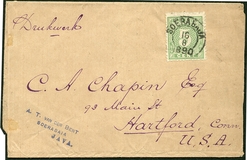 Drukwerk
SOERABAIA
16
8
890
C. A. Chapin Esq
93 Main St
Hartford, Conn.
U.S.A.
SOERABAIA
JAVA.